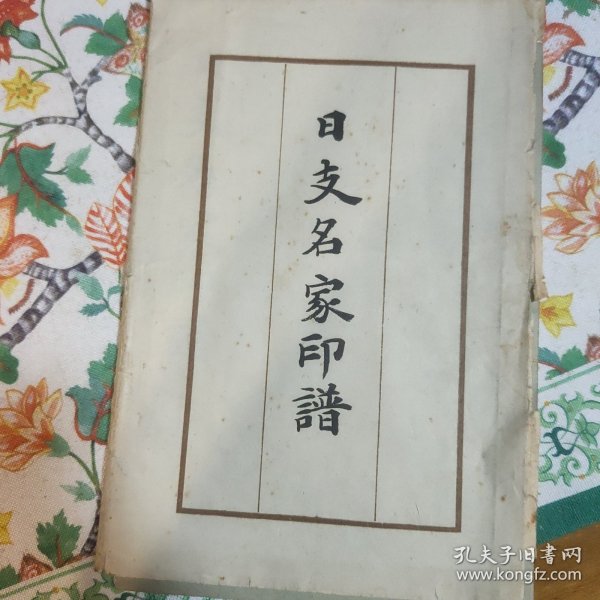 日支名家印譜
孔夫子旧書网
www.kongfz.com